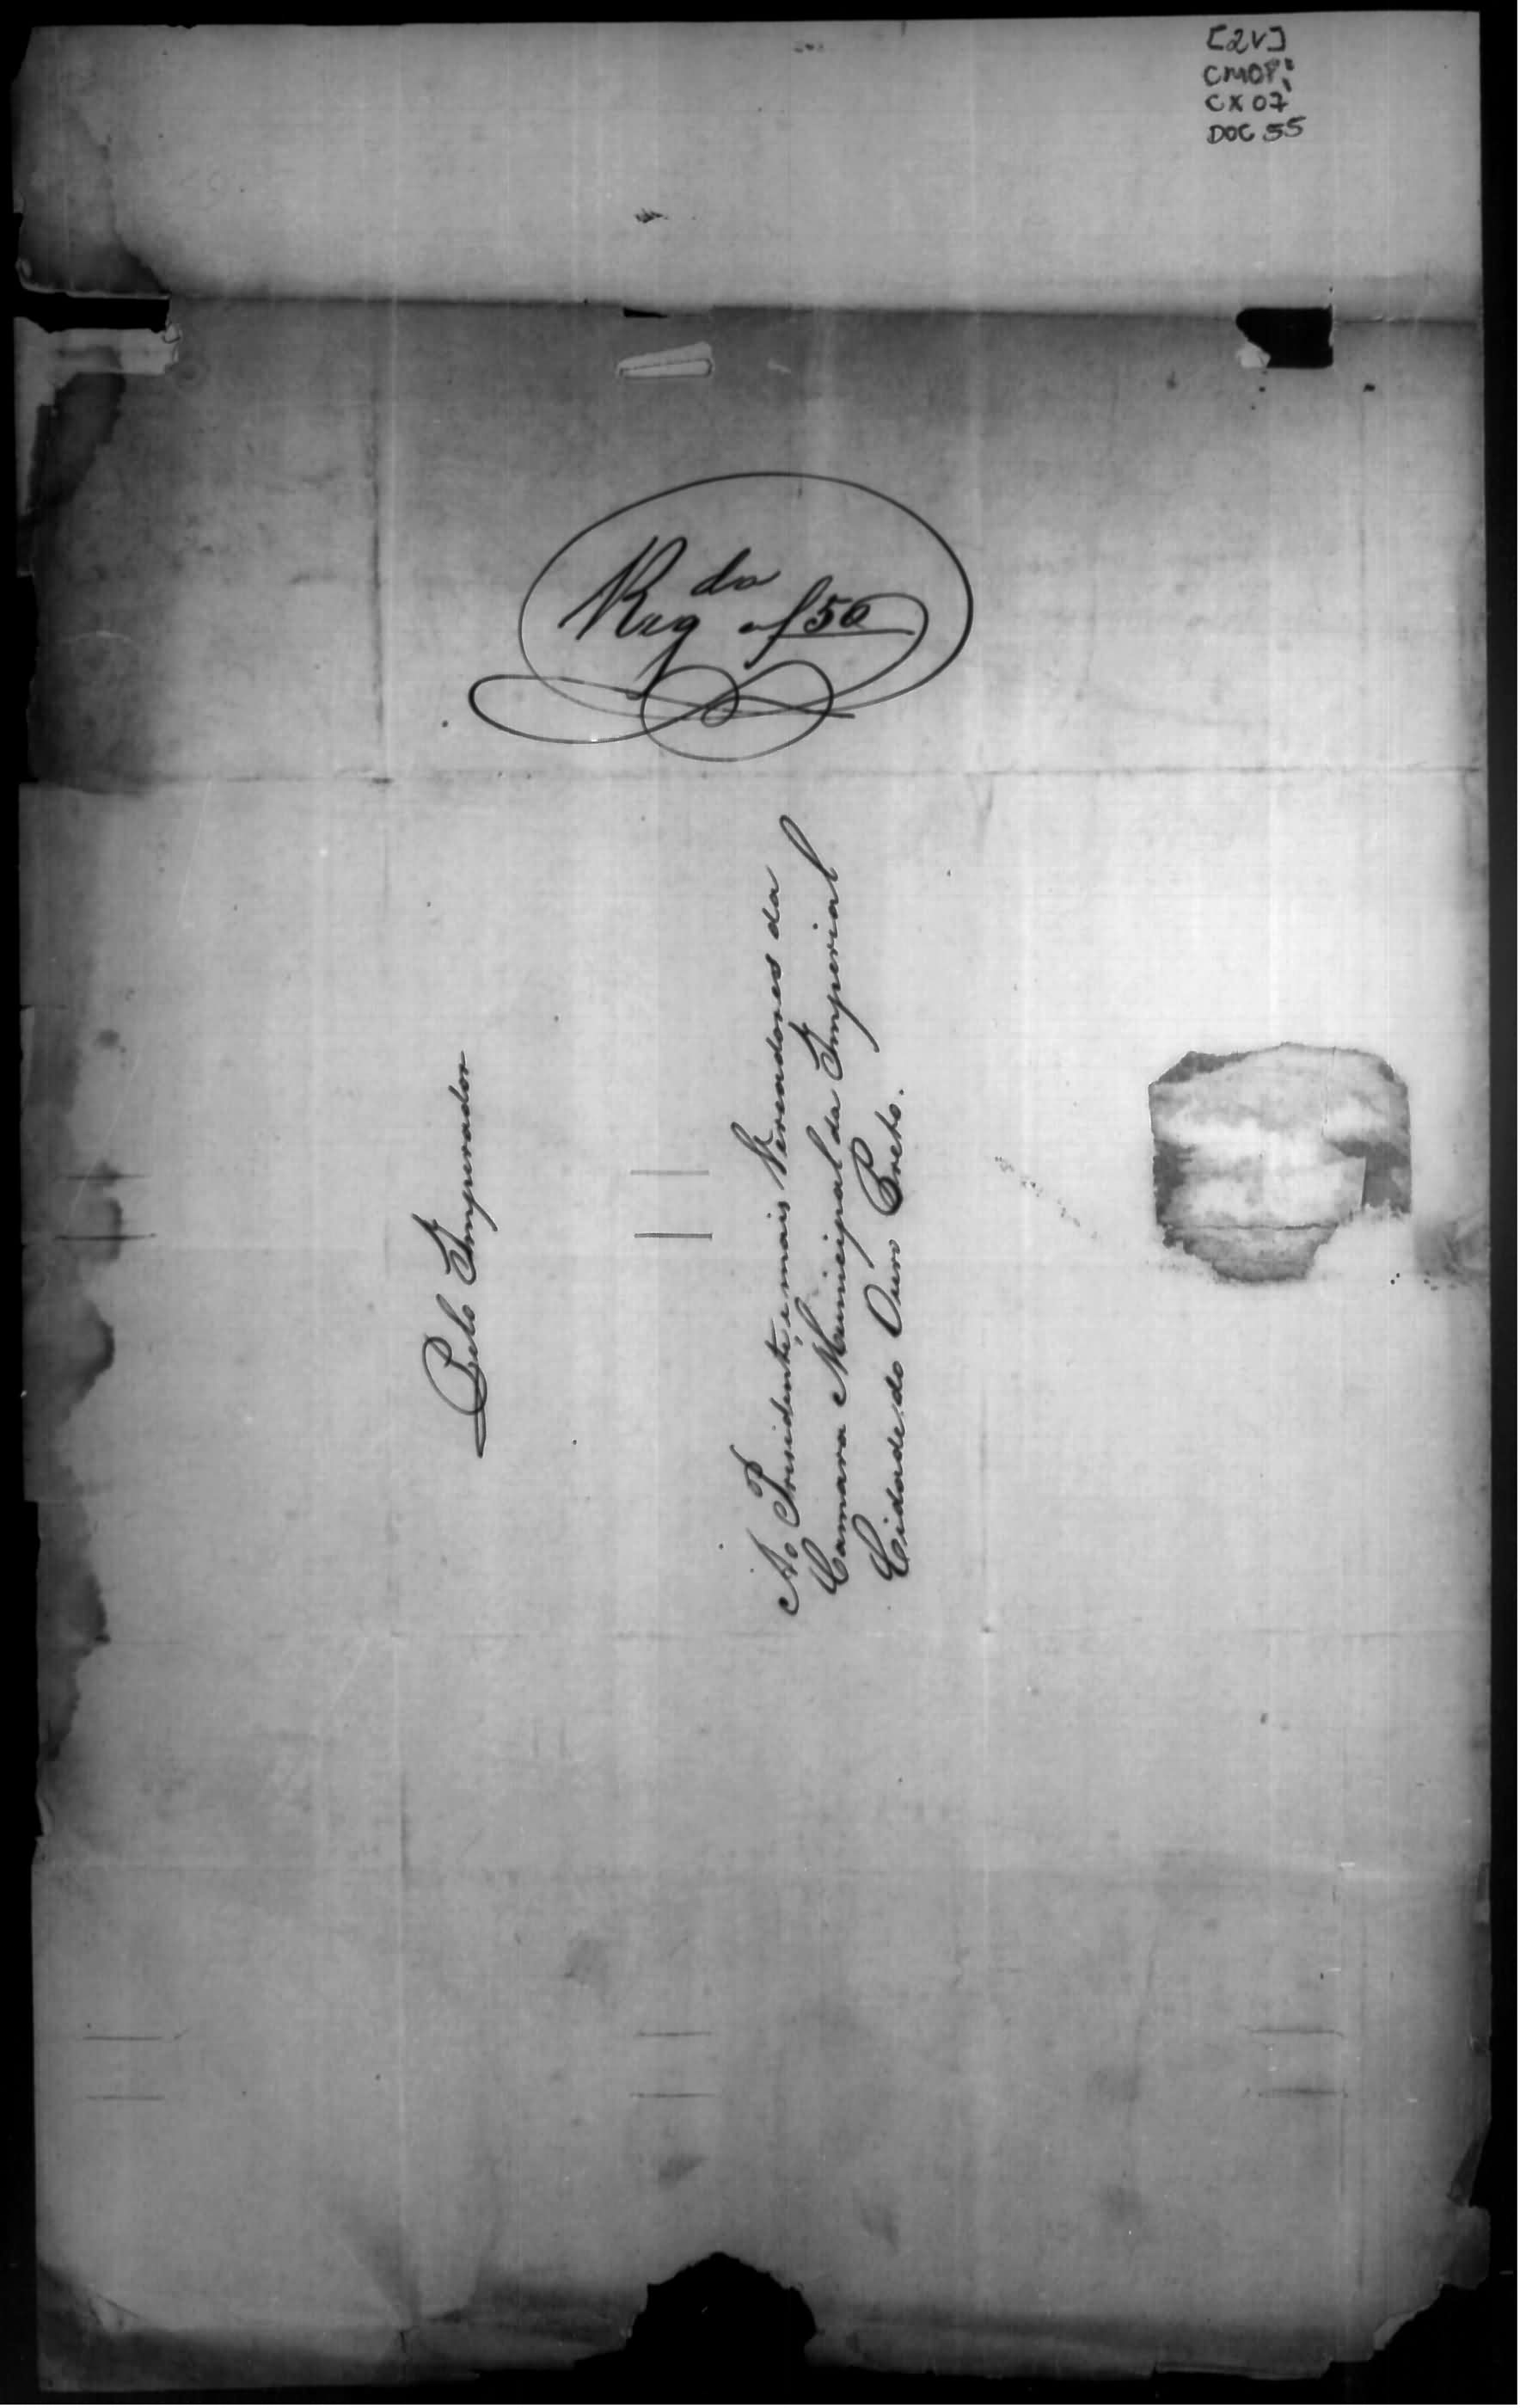 [2V]
CMOP;
CX 07
DOC 55
Reg do af 50
Pelo Imperador
Ao Presidente, e mais Vereadores da
Camara Municipal da Imperial
Cidade do Ouro Preto.